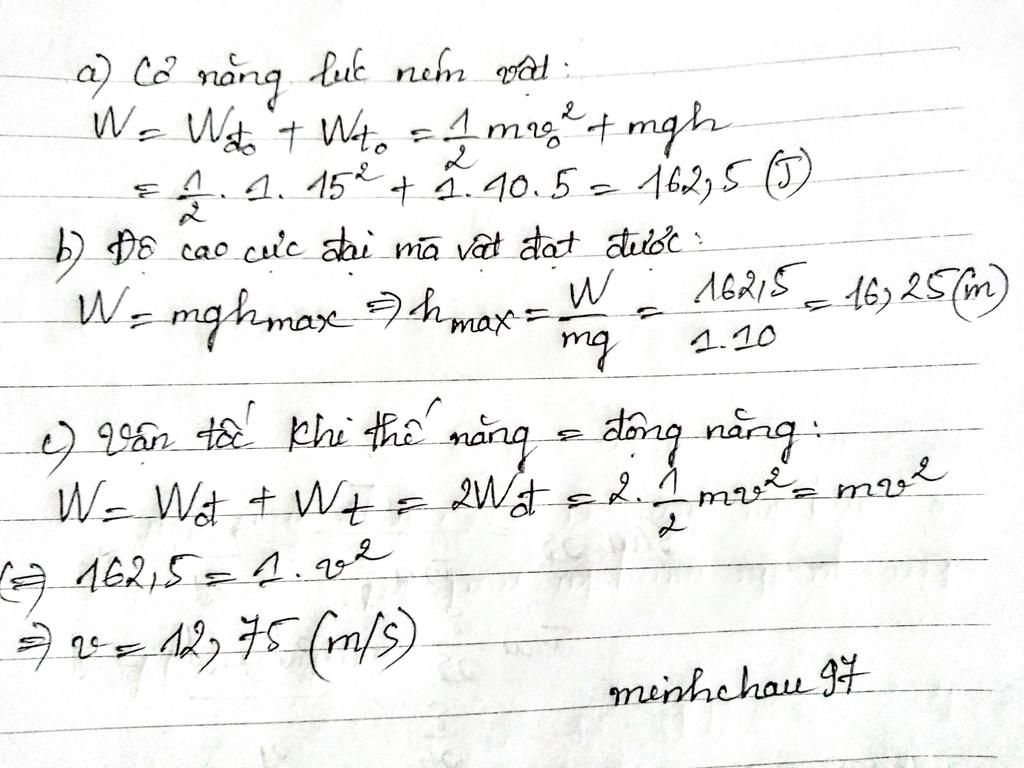 a) Cơ năng lúc ném vật:
W = Wđ₀ + Wt₀ = 1/2 mv₀² + mgh
= 1/2 . 1. 15² + 1.10.5 = 162,5 (J)
b) Độ cao cực đại mà vật đạt được:
W = mghmax ⇒ hmax = W/mg = 162,5/1.10 = 16,25 (m)
c) Vận tốc khi thế năng = động năng:
W = Wđ + Wt = 2Wđ = 2. 1/2 mv² = mv²
⇔ 162,5 = 1. v²
⇒ v = 12,75 (m/s)
minhchau97